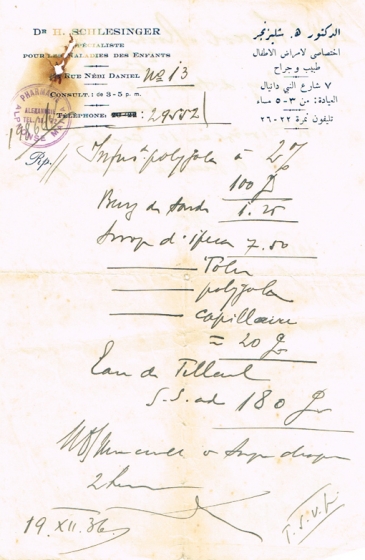 Dr H. SCHLESINGER
SPÉCIALISTE
POUR LES MALADIES DES ENFANTS
RUE NÉBI DANIEL No 13
CONSULT.: de 3-5 p. m.
TÉLÉPHONE: 29552
الدكتور ه. شليزنجر
اختصاصي لامراض الاطفال
طبيب وجراح
٧ شارع النبي دانيال
العيادة: من ٣-٥ مساء
تليفون نمرة ٢٦٠٢٢
PHARMA
ALEXAN
Rp. Infus polygala à 2%
100 g
Benz de soude 1.20
Sirop d'ipeca 7.50
Tolu
polygala
capillaire
= 20 gr
Eau de Tilleul
S.S. ad 180 gr
2 h
19. XII. 36.
T.S.V.P.